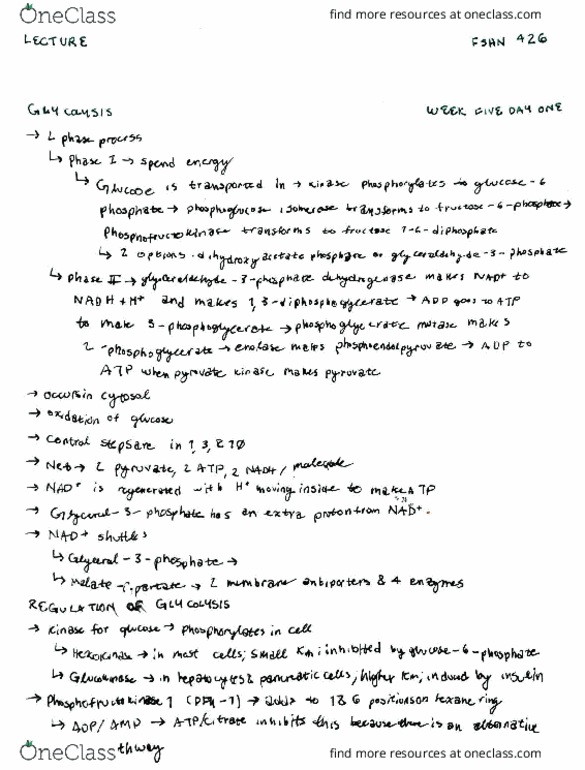 OneClass
find more resources at oneclass.com
LECTURE
FSHN 426
GLYCOLYSIS
WEEK FIVE DAY ONE
→ 2 phase process
↳ Phase I → spend energy
↳ Glucose is transported in → kinase phosphorylates to glucose-6
phosphate → phosphoglucose isomerase transforms to fructose-6-phosphate →
phosphofructokinase transforms to fructose 1-6-diphosphate
↳ 2 options · dihydroxyacetate phosphate or glyceraldehyde-3-phosphate
↳ phase II → glyceraldehyde-3-phosphate dehydrogenase makes NAD+ to
NADH + H+ and makes 1,3-diphosphoglycerate → ADP goes to ATP
to make 3-phosphoglycerate → phosphoglycerate mutase makes
2-phosphoglycerate → enolase makes phosphoenolpyruvate → ADP to
ATP when pyruvate kinase makes pyruvate
→ occurs in cytosol
→ oxidation of glucose
→ control steps are in 1, 3, & 10
→ Net → 2 pyruvate, 2 ATP, 2 NADH / molecule
→ NAD+ is regenerated with H+ moving inside to make ATP
→ Glycerol-3-phosphate has an extra proton from NAD+.
→ NAD+ shuttles
↳ Glycerol-3-phosphate →
↳ Malate → 2 membrane antiporters & 4 enzymes
REGULATION OF GLYCOLYSIS
→ kinase for glucose → phosphorylates in cell
↳ Hexokinase → in most cells; small Km; inhibited by glucose-6-phosphate
↳ Glucokinase → in hepatocytes & pancreatic cells; higher Km; induced by insulin
→ Phosphofructokinase 1 (PFK-1) → adds to 1 & 6 position on hexane ring
↳ ADP/AMP → ATP/citrate inhibits this because there is an alternative
thway
OneClass
find more resources at oneclass.com